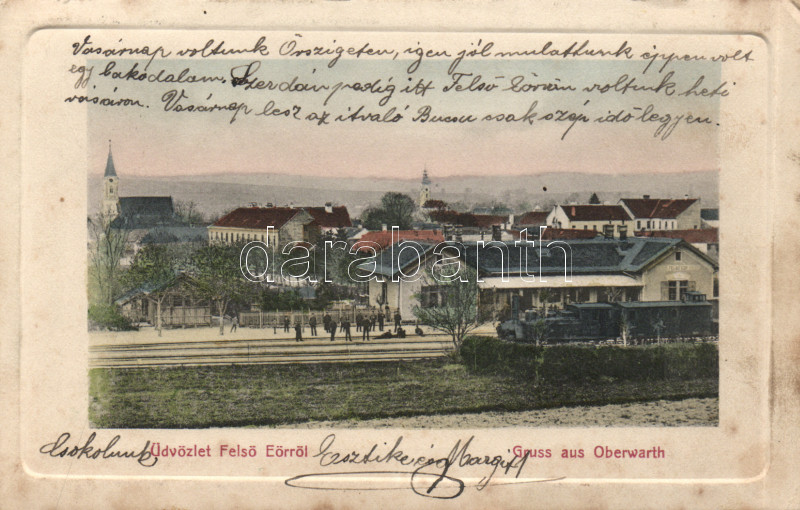 Vasárnap voltunk Őrszigeten, igen jól mulattunk éppen volt
egy lakodalom. Szerdán pedig itt Felső Eőrön voltunk heti
vásáron. Vasárnap lesz az itvaló Bucsu csak szép idő legyen.
darabanth
Üdvözlet Felső Eőrről Gruss aus Oberwarth
Csókolunk Margitt